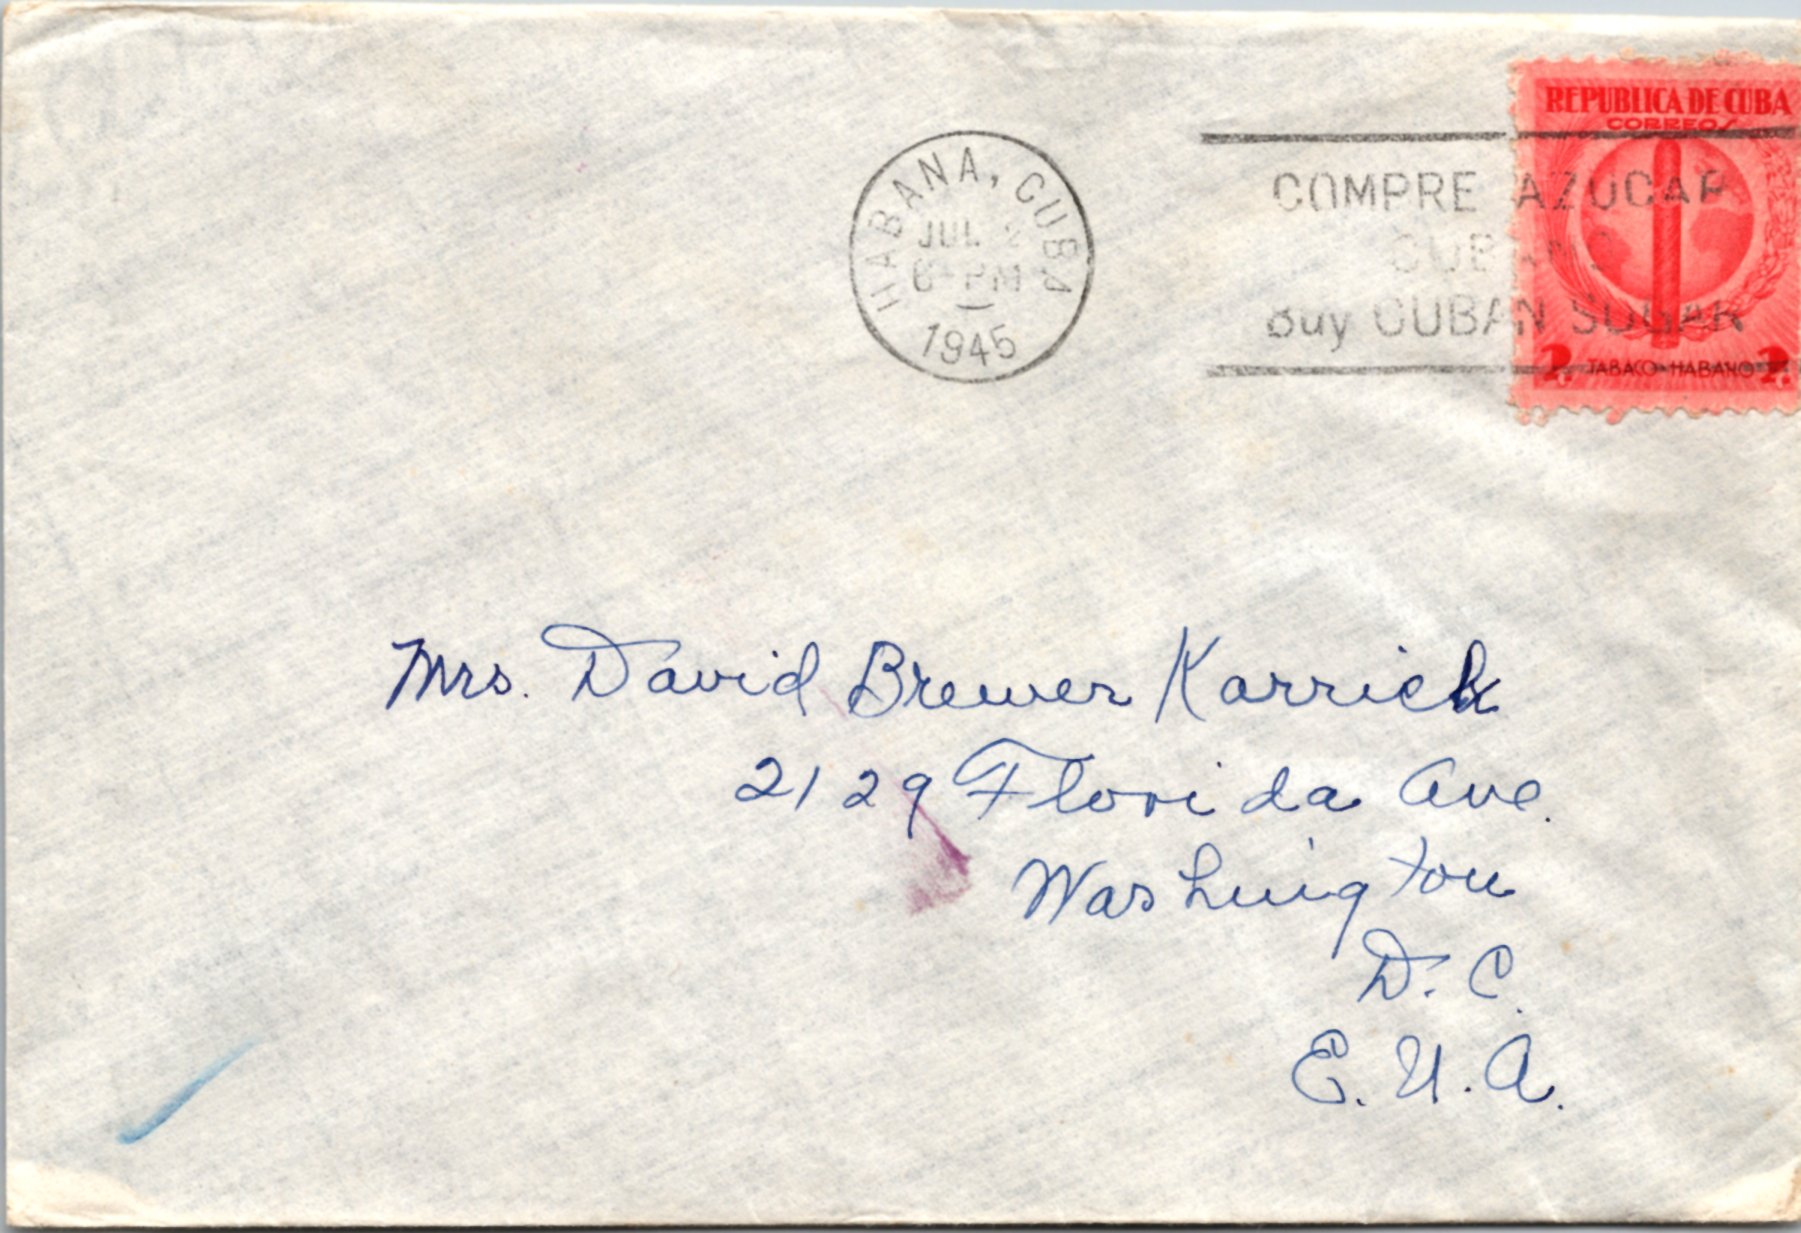 REPUBLICA DE CUBA
CORREOS
HABANA, CUBA
JUL 2
6-PM
1945
COMPRE AZUCAR
CUBANO
Buy CUBAN SUGAR
2c TABACO HABANO 2c
Mrs. David Brewer Karrick
2129 Florida Ave.
Washington
D.C.
E.U.A.